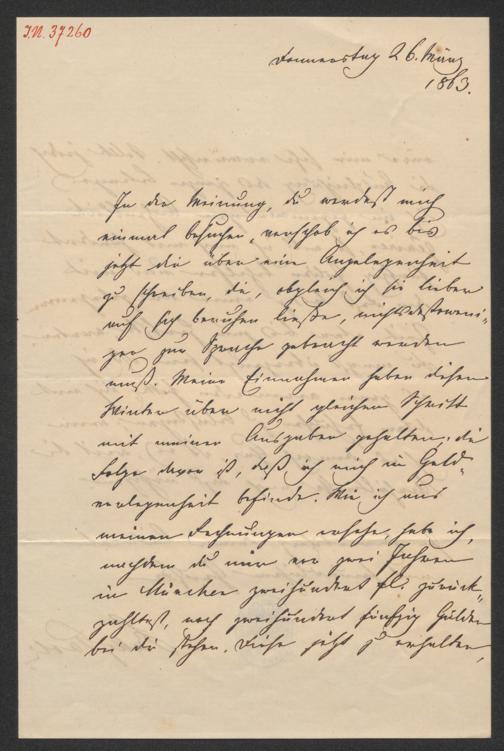 I.N. 37260
Donnerstag 26. März
1863.
In der Meinung, du werdest mich
einmal besuchen, verschob ich es bis
jetzt dir über eine Angelegenheit
zu schreiben, die, obgleich ich sie lieber
auf sich beruhen ließe, nichtsdestoweni-
ger zur Sprache gebracht werden
muß. Meine Einnahmen haben diesen
Winter über nicht gleichen Schritt
mit meinen Ausgaben gehalten, die
Folge davon ist, daß ich mich in Geld-
verlegenheit befinde. Wie ich aus
meinen Rechnungen ersehe, habe ich,
nachdem du mir vor zwei Jahren
in München zweihundert fl. zurück-
zahltest, noch zweihundert fünfzig Gulden
bei dir stehen. Diese jetzt zu erhalten,